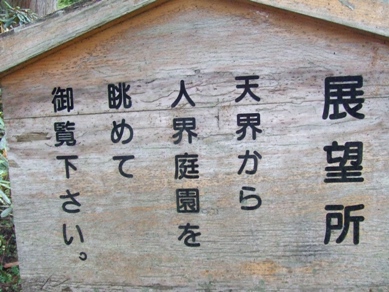 展望所
天界から
人界庭園を
眺めて
御覧下さい。